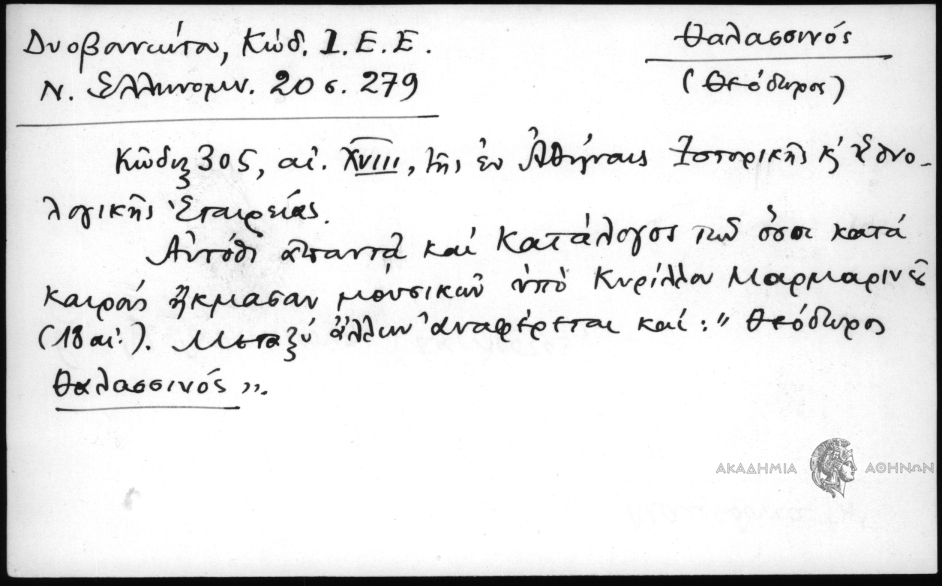 Δυοβουνιώτου, Κώδ. Ι. Ε. Ε.
Ν. Ἑλληνομν. 20 σ. 279
Θαλασσινός
(Θεόδωρος)
Κῶδιξ 305, αἰ. XVIII, τῆς ἐν Ἀθήναις Ἱστορικῆς κ' Ἐθνο-
λογικῆς Ἑταιρείας.
Αὐτόθι ἀπαντᾶ καὶ Κατάλογος τῶν ὅσοι κατὰ
καιροὺς ἤκμασαν μουσικῶν ὑπὸ Κυρίλλου Μαρμαρινοῦ
(18 αἰ.). Μεταξὺ ἄλλων ἀναφέρεται καὶ: "Θεόδωρος
Θαλασσινός".
ΑΚΑΔΗΜΙΑ ΑΘΗΝΩΝ